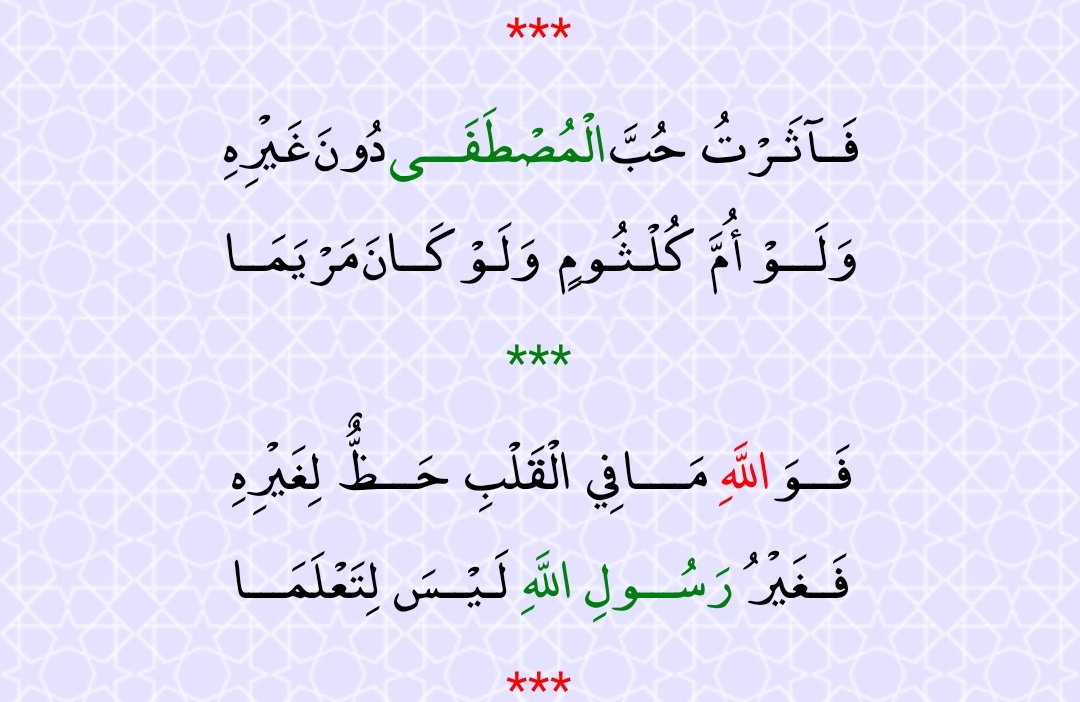 ***
فَــآثَــرْتُ حُبَّ الْمُصْطَفَـــى دُونَ غَيْرِهِ
وَلَـــوْ أُمَّ كُلْـثُـومٍ وَلَـوْ كَــانَ مَرْيَمَــا
***
فَـــوَ اللَّهِ مَـــا فِي الْقَلْبِ حَـــظٌّ لِغَيْرِهِ
فَــغَيْرُ رَسُـــولِ اللَّهِ لَـيْــسَ لِتَعْلَمَـــا
***